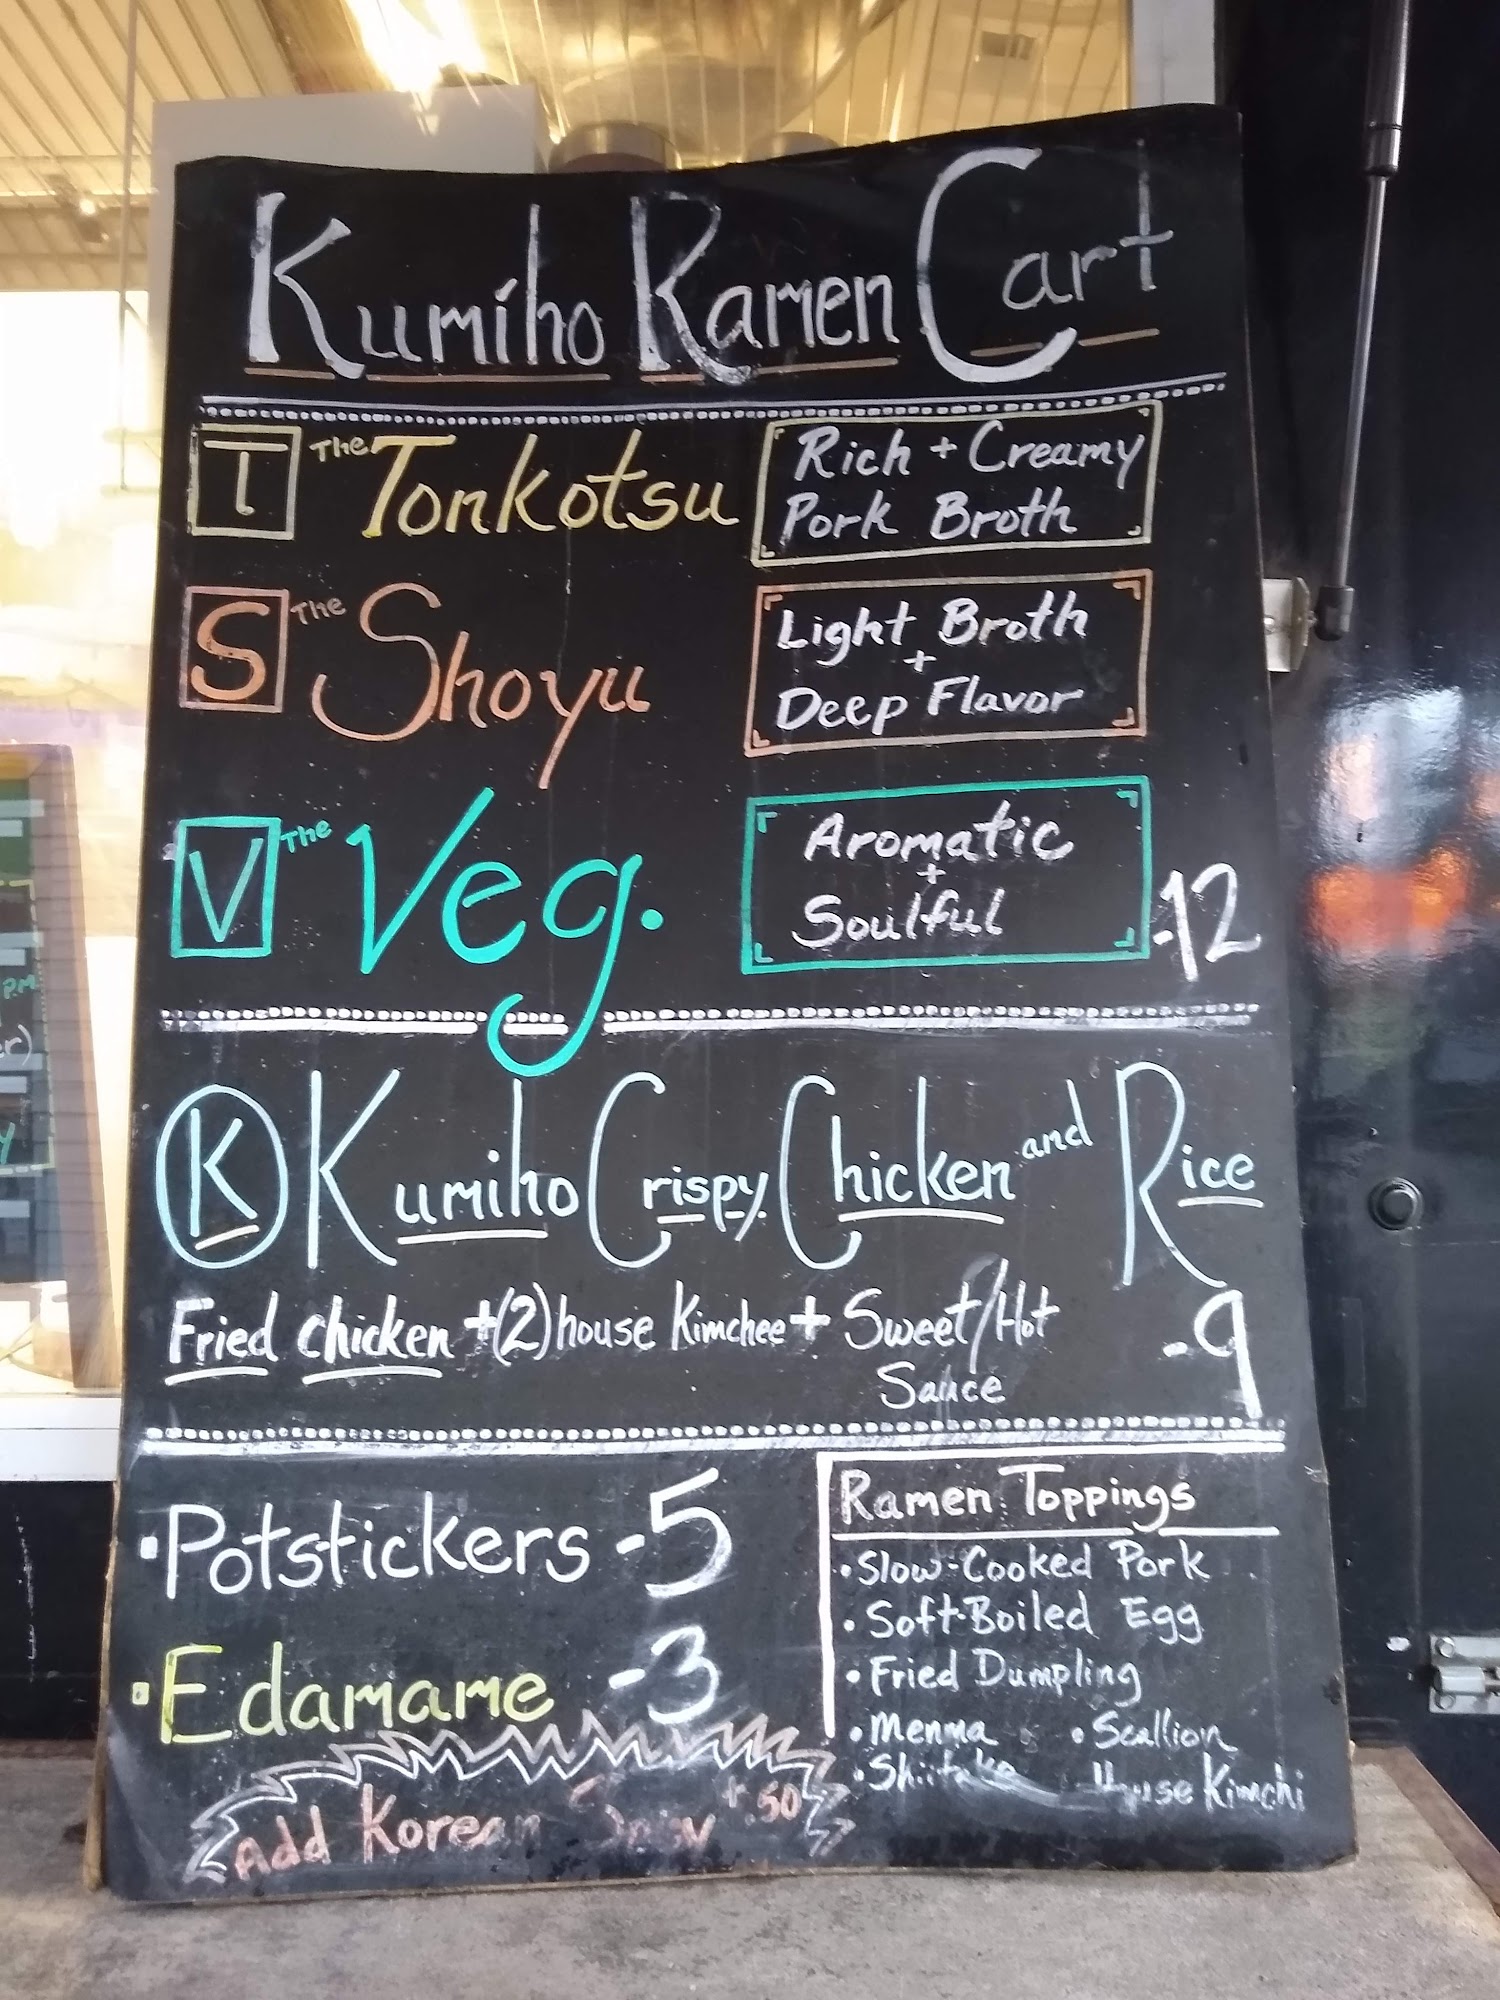 Kumiho Ramen Cart
T The Tonkotsu
Rich + Creamy
Pork Broth
S The Shoyu
Light Broth
+
Deep Flavor
V The Veg.
Aromatic
+
Soulful
-12
K Kumiho Crispy Chicken and Rice
Fried chicken +(2) house Kimchee + Sweet/Hot
Sauce
-9
·Potstickers -5
·Edamame -3
Add Korean Spicy +.50
Ramen Toppings
·Slow-Cooked Pork
·Soft-Boiled Egg
·Fried Dumpling
·Menma ·Scallion
·Shiitake House Kimchi
P.M.